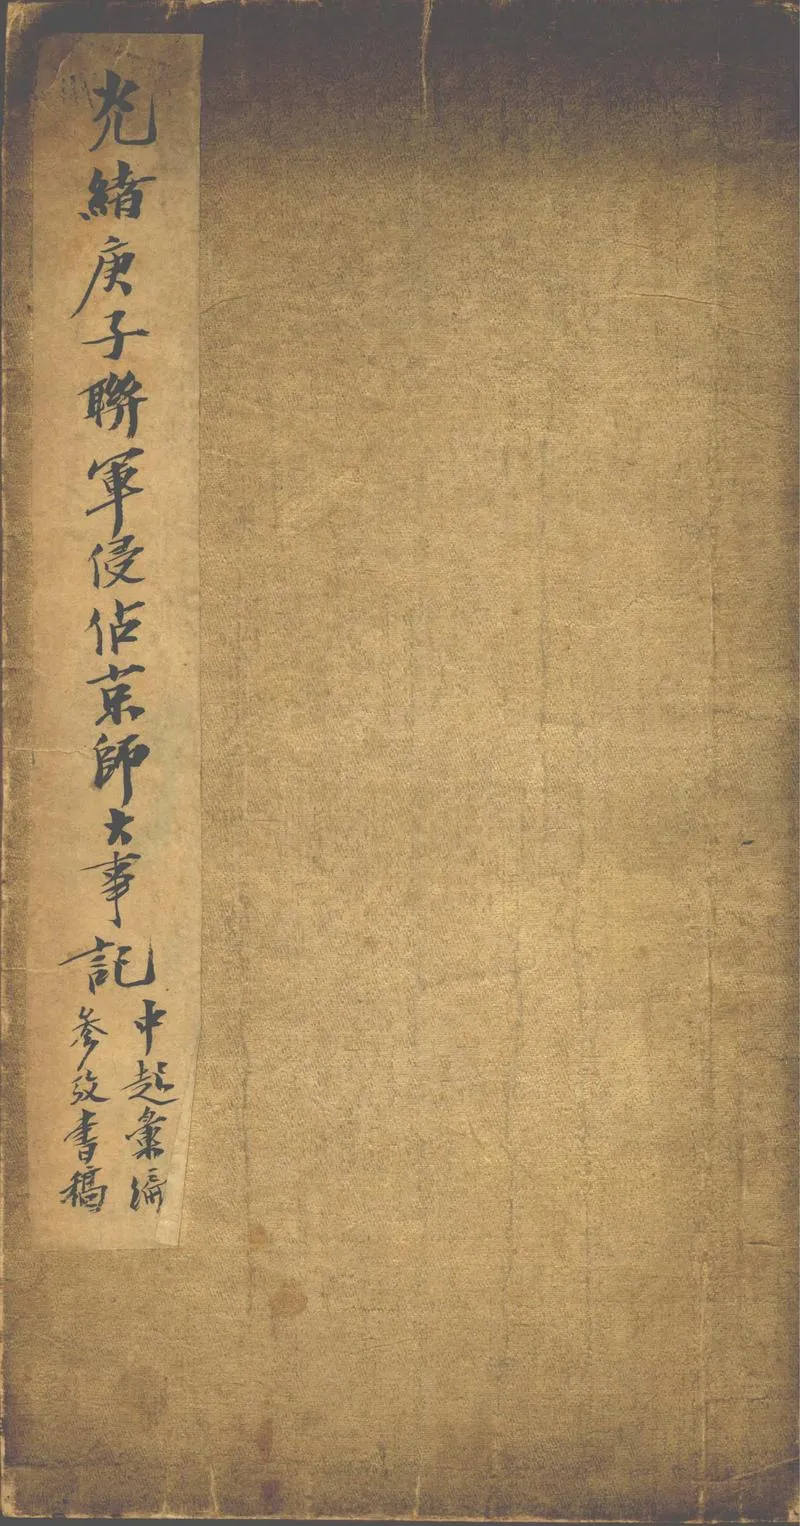 光緒庚子聯軍侵佔京師大事記
中起彙編
参攷書稿